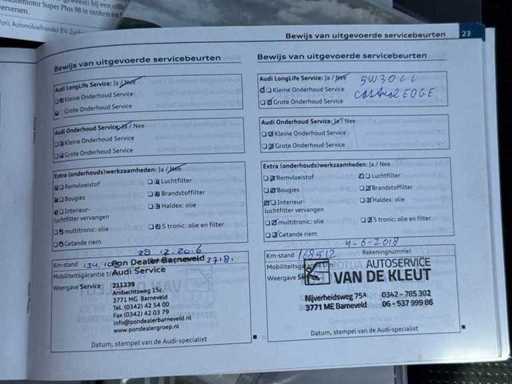 Bewijs van uitgevoerde servicebeurten
Audi LongLife Service: Ja / Nee
Kleine Onderhoud Service
Grote Onderhoud Service
Audi Onderhoud Service: Ja / Nee
Kleine Onderhoud Service
Grote Onderhoud Service
Extra (onderhouds)werkzaamheden: Ja / Nee
Remvloeistof
Luchtfilter
Bougies
Brandstoffilter
Interieur-
luchtfilter vervangen
Haldex: olie
multitronic: olie
S tronic: olie en filter
Getande riem
Km-stand
Mobiliteitsgarantie t
Weergave Service
Pon Dealer Barneveld
Audi Service
211339
3771 MG Barneveld
Tel. (0342) 42 54 00
Fax (0342) 42 03 79
info@pondealerbarneveld.nl
www.pondealergroep.nl
Datum, stempel van de Audi-specialist
Bewijs van uitgevoerde servicebeurten 23
Audi LongLife Service: Ja / Nee
5W30LL
Kleine Onderhoud Service
Grote Onderhoud Service
EDGE
Audi Onderhoud Service: Ja / Nee
Kleine Onderhoud Service
Grote Onderhoud Service
Extra (onderhouds)werkzaamheden: Ja / Nee
Remvloeistof
Luchtfilter
Bougies
Brandstoffilter
Interieur-
luchtfilter vervangen
Haldex: olie
multitronic: olie
S tronic: olie en filter
Getande riem
4-6-2018
Km-stand
Rekeningnummer
Mobiliteitsga
Weergave S
AUTOSERVICE
VAN DE KLEUT
Nijverheidsweg 75A 0342 - 785 302
3771 ME Barneveld 06 - 537 999 86
Datum, stempel van de Audi-specialist